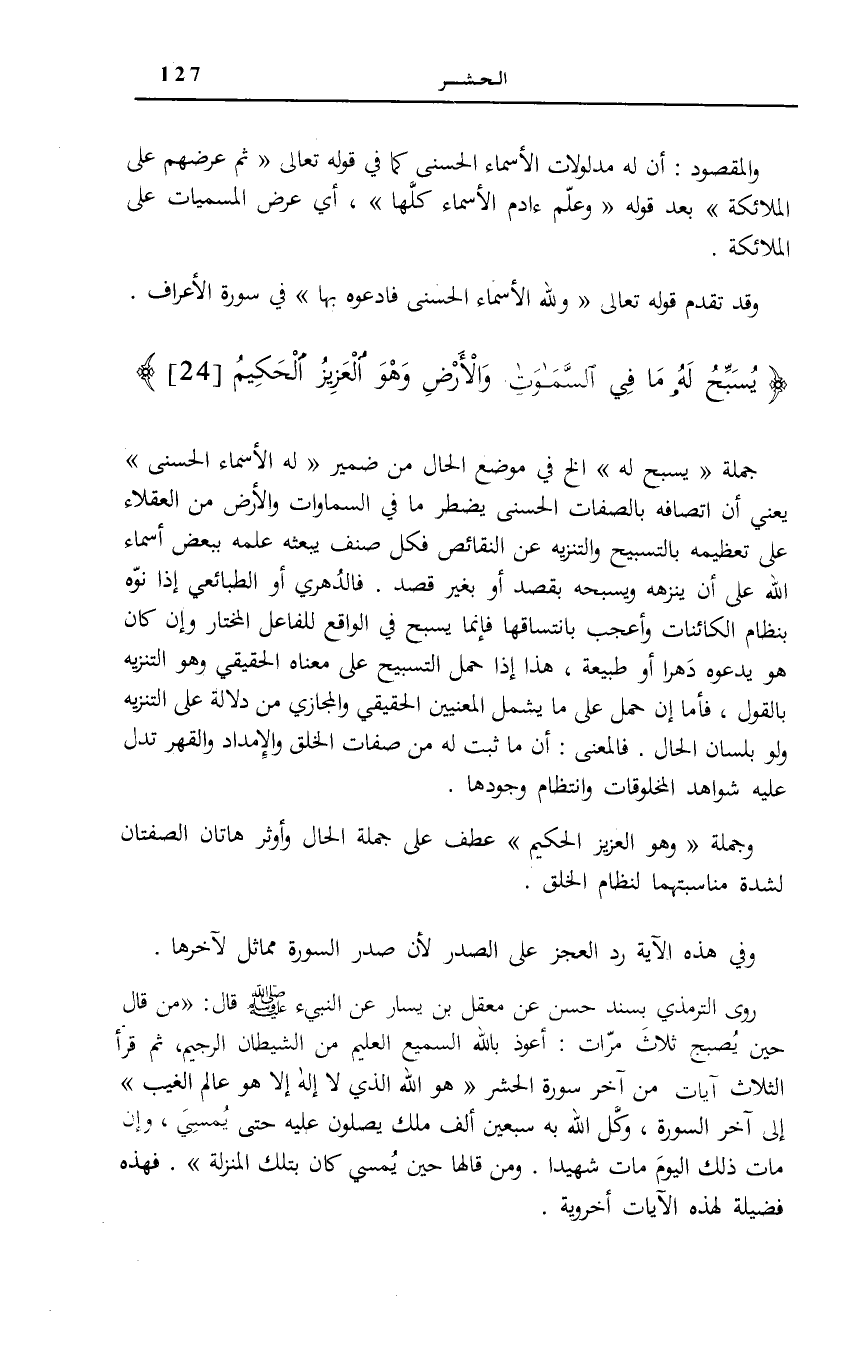 الحشر 127
والمقصود : أن له مدلولات الأسماء الحسنى كما في قوله تعالى « ثم عرضهم على
الملائكة » بعد قوله « وعلّم ءادم الأسماء كلَّها » ، أي عرض المسميات على
الملائكة .
وقد تقدم قوله تعالى « ولله الأسماء الحسنى فادعوه بها » في سورة الأعراف .
﴿ يُسَبِّحُ لَهُۥ مَا فِي ٱلسَّمَـٰوَٰتِ وَالْأَرْضِ وَهْوَ ٱلْعَزِيزُ ٱلْحَكِيمُ [24] ﴾
جملة « يسبح له » الخ في موضع الحال من ضمير « له الأسماء الحسنى »
يعني أن اتصافه بالصفات الحسنى يضطر ما في السماوات والأرض من العقلاء
على تعظيمه بالتسبيح والتنزيه عن النقائص فكل صنف يبعثه علمه ببعض أسماء
الله على أن ينزهه ويسبحه بقصد أو بغير قصد . فالدُهري أو الطبائعي إذا نوّه
بنظام الكائنات وأعجب بانتساقها فإنما يسبح في الواقع للفاعل المختار وإن كان
هو يدعوه دَهرا أو طبيعة ، هذا إذا حمل التسبيح على معناه الحقيقي وهو التنزيه
بالقول ، فأما إن حمل على ما يشمل المعنيين الحقيقي والمجازي من دلالة على التنزيه
ولو بلسان الحال . فالمعنى : أن ما ثبت له من صفات الخلق والإمداد والقهر تدل
عليه شواهد المخلوقات وانتظام وجودها .
وجملة « وهو العزيز الحكيم » عطف على جملة الحال وأوثر هاتان الصفتان
لشدة مناسبتهما لنظام الخلق .
وفي هذه الآية رد العجز على الصدر لأن صدر السورة مماثل لآخرها .
روى الترمذي بسند حسن عن معقل بن يسار عن النبيء ﷺ قال: «من قال
حين يُصبح ثلاثَ مرّات : أعوذ بالله السميع العليم من الشيطان الرجيم، ثم قرأ
الثلاث آيات من آخر سورة الحشر « هو الله الذي لا إلهٰ إلا هو عالم الغيب »
إلى آخر السورة ، وكَّل الله به سبعين ألف ملك يصلون عليه حتى يُمسيَ ، وإن
مات ذلك اليومَ مات شهيدا . ومن قالها حين يُمسي كان بتلك المنزلة » . فهذه
فضيلة لهذه الآيات أخروية .